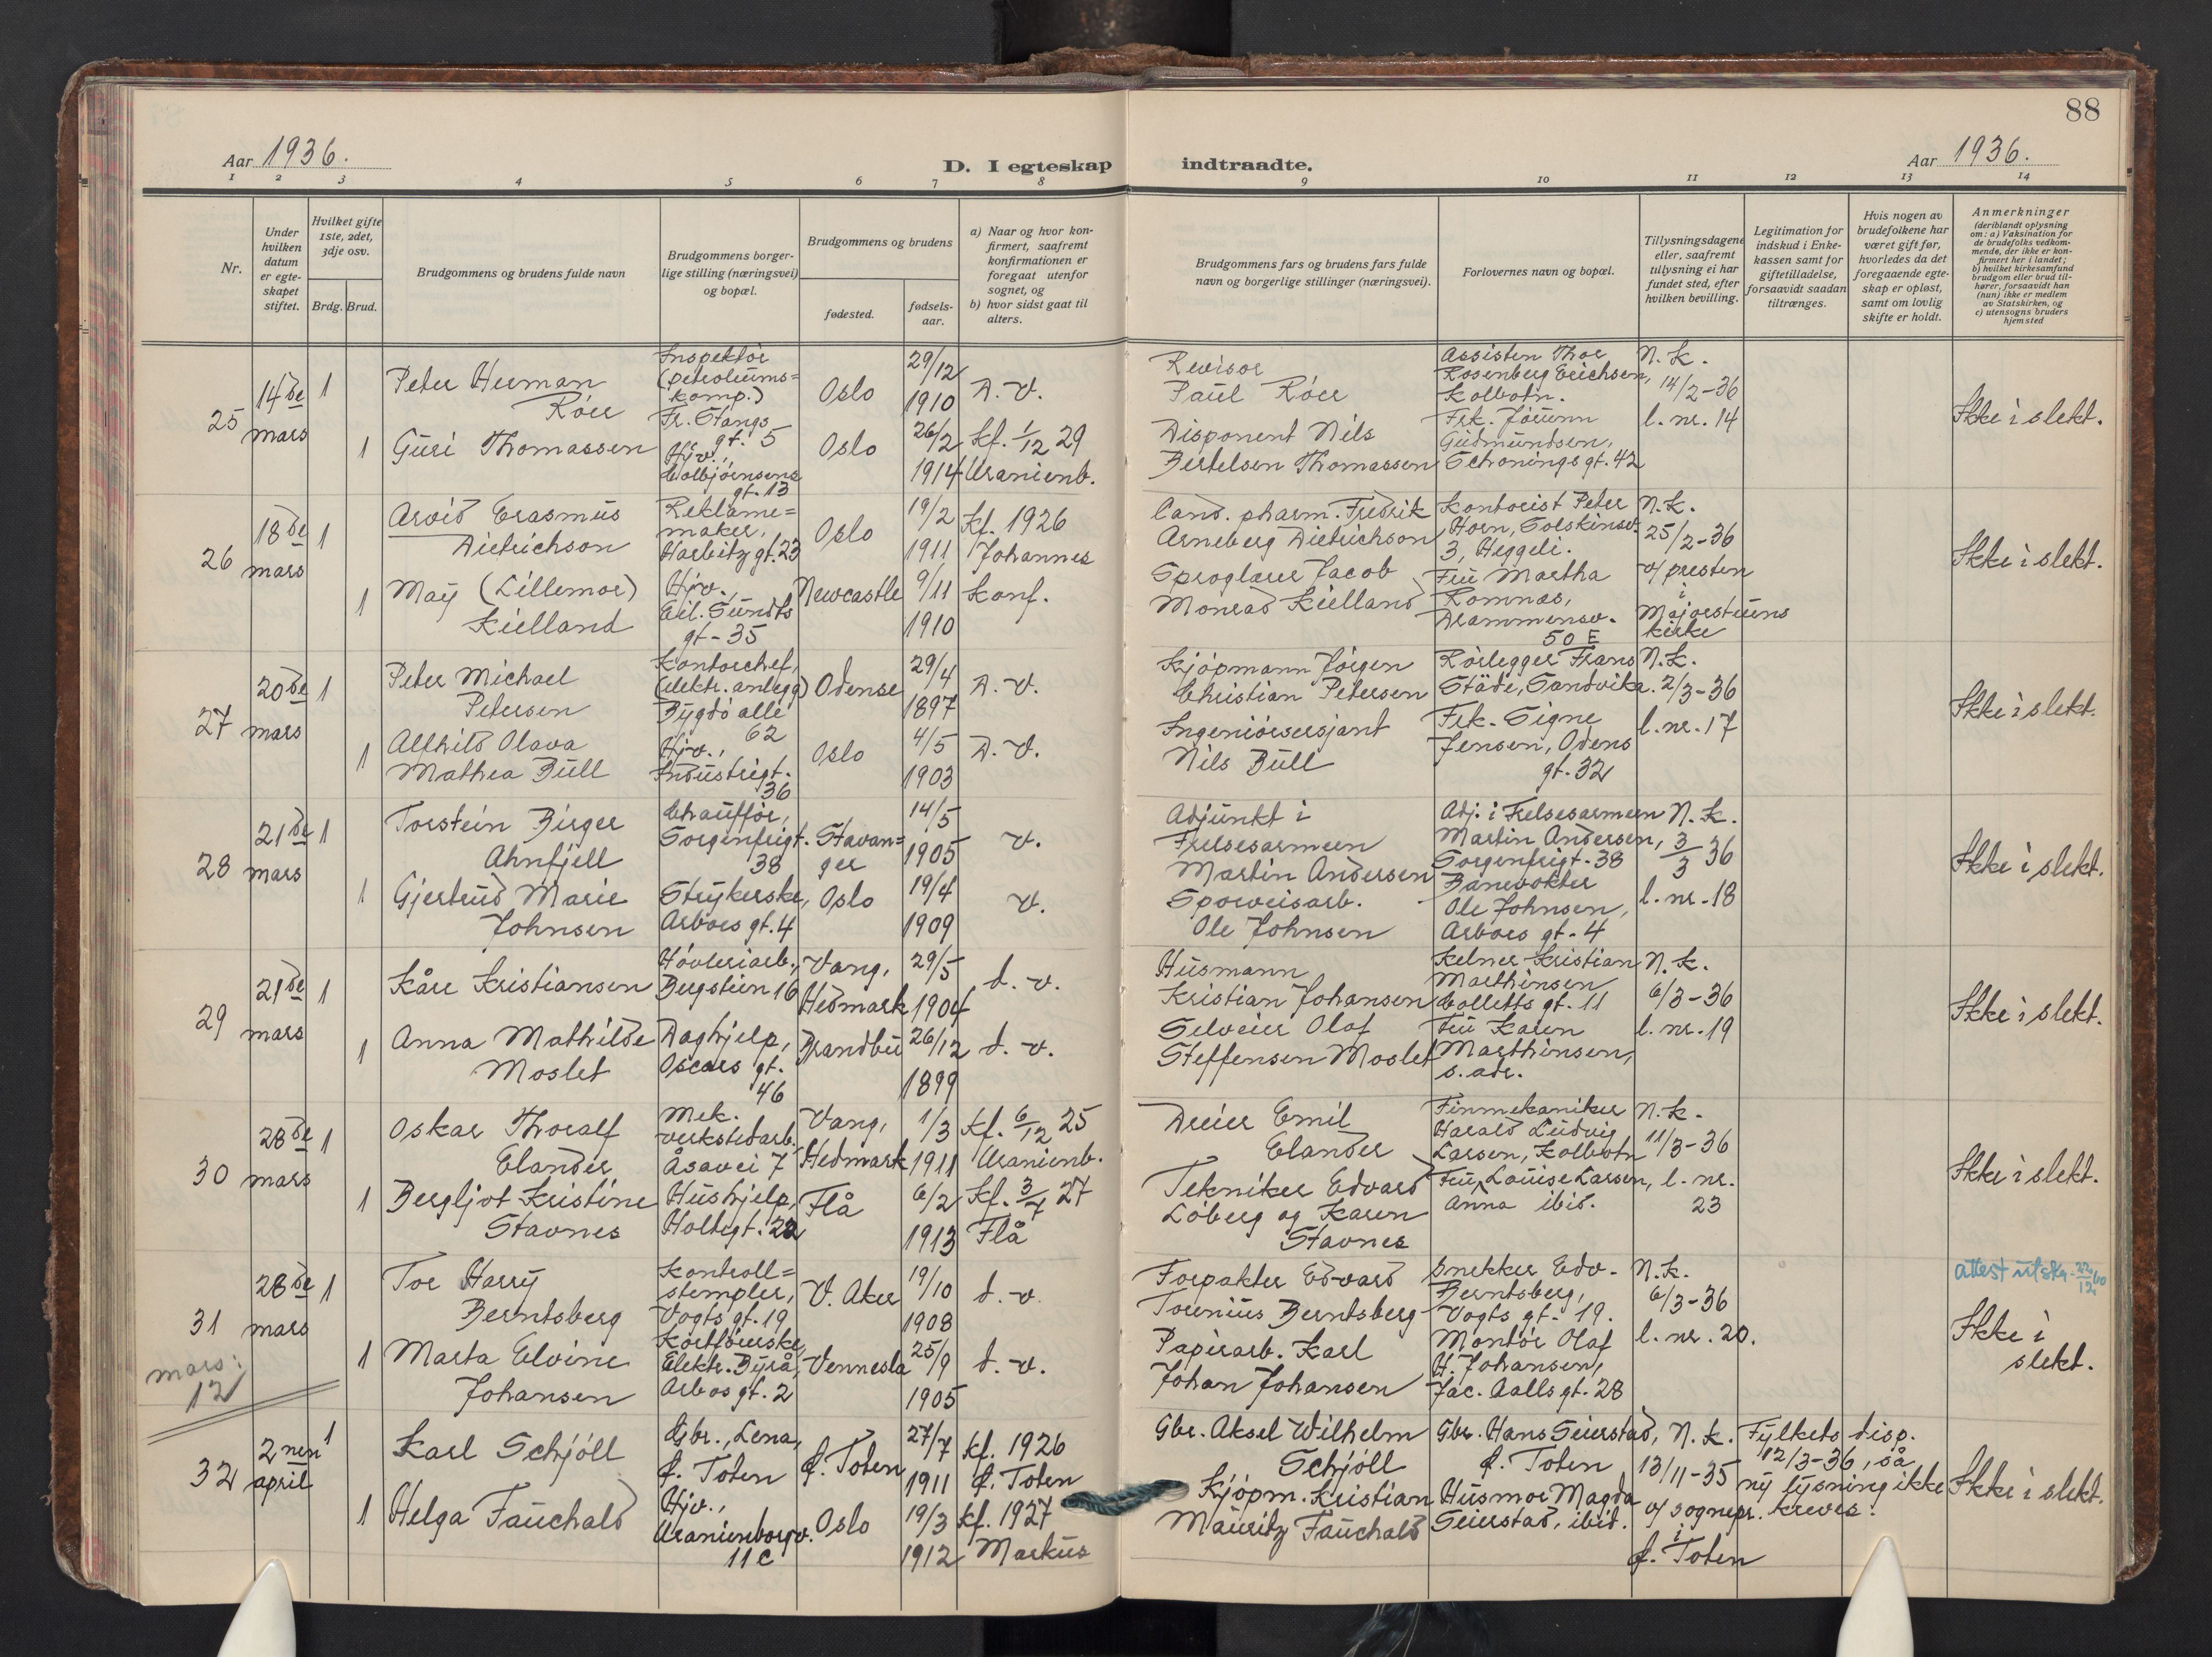 88
Aar 1936.
D. I egteskap indtraadte.
Aar 1936.
1 2 3 4 5 6 7 8 9 10 11 12 13 14
Nr.
Under hvilken datum er egteskapet stiftet.
Hvilket gifte 1ste, 2det, 3dje osv.
Brdg. Brud.
Brudgommens og brudens fulde navn
Brudgommens borgerlige stilling (næringsvei) og bopæl.
Brudgommens og brudens
fødested.
fødselsaar.
a) Naar og hvor konfirmert, saafremt konfirmationen er foregaat utenfor sognet, og
b) hvor sidst gaat til alters.
Brudgommens fars og brudens fars fulde navn og borgerlige stillinger (næringsvei).
Forlovernes navn og bopæl.
Tillysningsdagene eller, saafremt tillysning ei har fundet sted, efter hvilken bevilling.
Legitimation for indskud i Enkekassen samt for giftetilladelse, forsaavidt saadan tiltrænges.
Hvis nogen av brudefolkene har været gift før, hvorledes da det foregaaende egteskap er opløst, samt om lovlig skifte er holdt.
Anmerkninger (deriblandt oplysning om: a) Vaksination for de brudefolks vedkommende, der ikke er konfirmert her i landet; b) hvilket kirkesamfund brudgom eller brud tilhører, forsaavidt han (hun) ikke er medlem av Statskirken, og c) utensogns bruders hjemsted
25
14de mars
1
Peter Herman Röer
Inspektör (petroleums=komp.) Fr. Stangs gt. 5
Oslo
29/12 1910
D. V.
Revisor Paul Röer
Assisten Thor Rosenberg Erichsen, Kolbotn.
N. k. 14/2-36 l. nr. 14
Ikke i slekt.
1
Guri Thomassen
Hjv., Colbjörnsens gt. 13
Oslo
26/2 1914
Kf. 1/12 29 Uranienb.
Disponent Nils Bertelsen Thomassen
Frk. Jörunn Gudmundsen, Schönings gt. 42
26
18de mars
1
Arvid Erasmus Dietrichson
Reklame=maker, Harbitz gt. 23
Oslo
19/2 1911
Kf. 1926 Johannes
Cand. pharm. Fredrik Arneberg Dietrichson
Kontorist Peter Horn, Solskinsv. 3, Heggeli.
N. k. 25/2-36 v/ presten i Majorstuens kirke
Ikke i slekt.
1
May (Lillemor) Kielland
Hjv., Eil. Sundts gt-35
Newcastle
9/11 1910
Konf.
Sproglærer Jacob Monrad Kielland
Fru Martha Romnæs, Drammensv. 50 E
27
20de mars
1
Peter Michael Petersen
Kontorchef, (elektr. anlegg) Bygdö alle 62
Odense
29/4 1897
D. V.
Kjöpmann Jörgen Christian Petersen
Rörlegger Frans Städe, Sandvika.
N. k. 2/3-36 l. nr. 17
Ikke i slekt.
1
Alfhild Olava Mathea Bull
Hjv., Industrigt. 36
Oslo
4/5 1903
D. V.
Ingeniörsersjant Nils Bull
Frk. Signe Jensen, Odens gt. 32
28
21de mars
1
Torstein Birger Ahnfjell
Chaufför, Sorgenfrigt. 38
Stavan=ger
14/5 1905
v.
Adjunkt i Frelsesarmeen Martin Andersen
Adj. i Frelsesarmeen Martin Andersen, Sorgenfrigt. 38
N. k. 3/3 36 l. nr. 18
Ikke i slekt.
1
Gjertrud Marie Johnsen
Strykerske, Arbos gt. 4
Oslo
19/4 1909
v.
Sporveisarb. Ole Johnsen
Banevokter Ole Johnsen, Arbos gt. 4
29
21de mars
1
Kåre Kristiansen
Hövleriarb., Bergstien 16
Vang, Hedmark
29/5 1904
d. v.
Husmann Kristian Johansen
Kelner Kristian Marthinsen Colletts gt. 11
N. k. 6/3-36 l. nr. 19
Ikke i slekt.
1
Anna Mathilde Moslet
Daghjelp, Oscars gt. 46
Brandbu
26/12 1899
d. v.
Selveier Olaf Steffensen Moslet
Fru Karen Marthinsen, s. adr.
30
28de mars
1
Oskar Thoralf Elander
Mek. verkstedarb. Åsavei 7
Vang, Hedmark
1/3 1911
Kf. 6/12 25 Uranienb.
Dreier Emil Elander
Finmekaniker Harald Ludvig Larsen, Kolbotn
N. k. 11/3-36 l. nr. 23
Ikke i slekt.
1
Bergljot Kristine Stavnes
Hushjelp, Holtegt. 22
Flå
6/2 1913
Kf. 3/7 27 Flå
Tekniker Edvard Löberg og Karen Stavnes
Fru Anna Louise Larsen, ibid.
31
28de mars
1
Tor Harry Berntsberg
Kontroll=stempler, Vogts gt. 19
V. Aker
19/10 1908
d. v
Forpakter Edvard Torenius Berntsberg
Snekker Edv. Berntsberg, Vogts gt. 19.
N. k. 6/3-36 l. nr. 20.
attest utskr. 22/12 60
Ikke i slekt.
1
Marta Elvine Johansen
Kortförerske, Elektr. Byrå, Arbos gt. 2
Vennesla
25/9 1905
d. v.
Papirarb. Karl Johan Johansen
Montör Olaf H. Johansen, Jac. Aalls gt. 28
mars: 12
32
2nen april
1
Karl Schjöll
Gbr., Lena, Ö. Toten
Ö. Toten
27/7 1911
Kf. 1926 Ö. Toten
Gbr. Aksel Wilhelm Schjöll
Gbr. Hans Seierstad, Ö. Toten
N. k. 13/11-35 v/ sognepr. i Ö. Toten
Fylkets disp. 12/3-36, så ny lysning ikke kreves.
Ikke i slekt.
1
Helga Fauchald
Hjv., Uranienborgv. 11 c
Oslo
19/3 1912
Kf. 1927 Markus
Kjöpm. Kristian Mauritz Fauchald
Husmor Magda Seierstad, ibid.